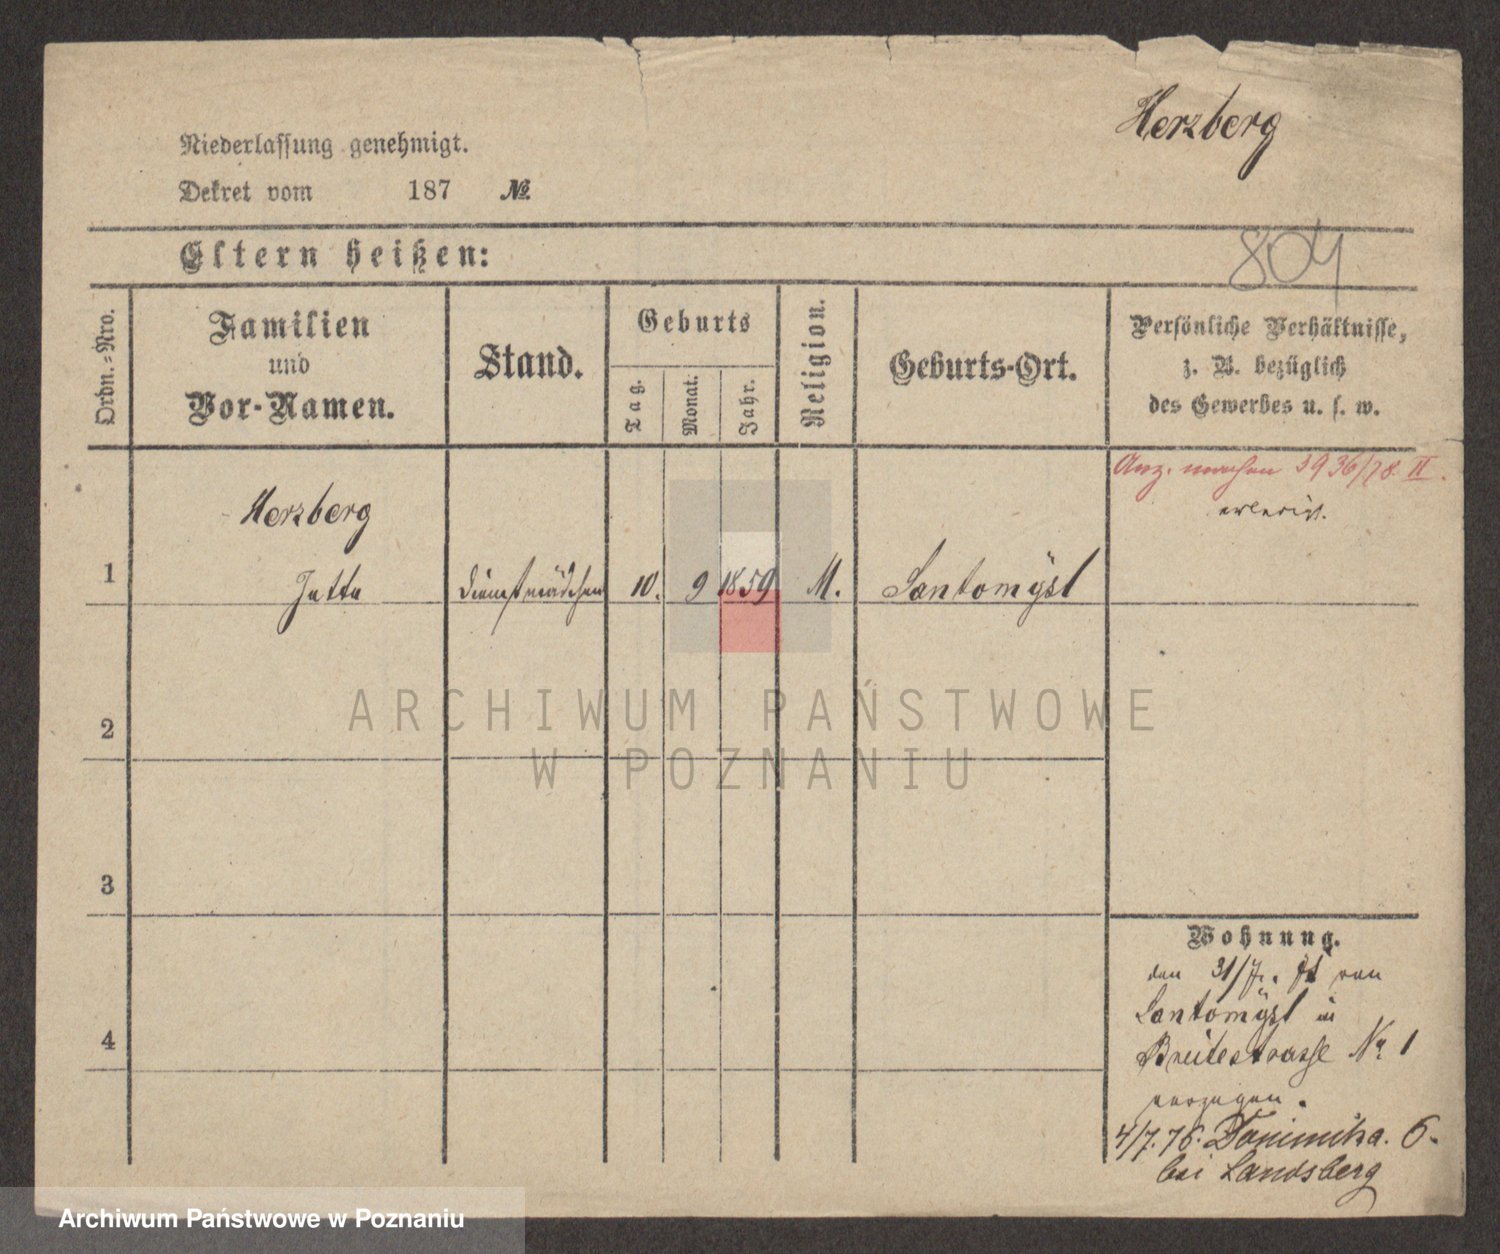 Herzberg
Niederlassung genehmigt.
Dekret vom 187 №
804
Eltern heißen:
Ordn.-Nro.
Familien
und
Vor-Namen.
Stand.
Geburts
Tag.
Monat.
Jahr.
Religion.
Geburts-Ort.
Persönliche Verhältnisse,
z. B. bezüglich
des Gewerbes u. s. w.
Anz. machen 3936/78 II.
erledigt.
Herzberg
1 Jette Dienstmädchen 10. 9 1859 M. Santomÿsl
2
ARCHIWUM PAŃSTWOWE
W POZNANIU
3
4
Wohnung.
den 31/7. von
Santomÿsl in
Breitestrasse No 1
verzogen.
4/7.76. Dominika. 6.
bei Landsberg
Archiwum Państwowe w Poznaniu